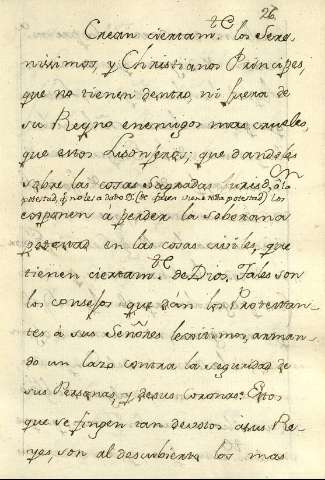 26.
Crean ciertam.te los Sere-
nissimos, y Christianos Principes,
que no tienen dentro, ni fuera de
su Reyno enemigos mas crueles,
que estos Lisonjeros; que dandoles
sobre las cosas Sagradas jurisd.on o la
potestad, q no les a dado D.s (de quien viene toda potestad) los
exponen a perder la soberana
potestad en las cosas civiles, que
tienen ciertam.te de Dios. Tales son
los consejos que dan los Protestan-
tes à sus Señores lexitimos, arman-
do un lazo contra la seguridad de
sus Personas, y de sus Coronas. Estos
que se fingen tan devotos a sus Re-
yes, son al descubierto los mas